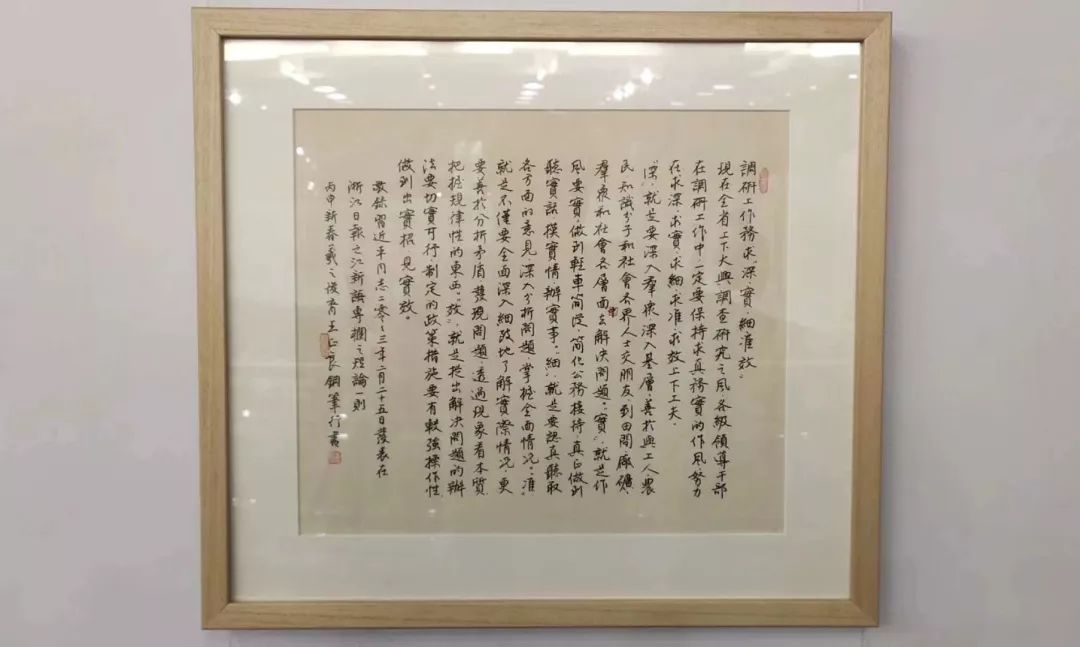 調研工作務求“深、實、細、准、效”
現在全省上下大興調查研究之風,各級領導干部
在調研工作中,一定要保持求真務實的作風,努力
在求深、求實、求細、求准、求效上下工夫。
“深”,就是要深入羣衆,深入基層,善於與工人、農
民、知識分子和社會各界人士交朋友,到田間、廠礦、
羣衆和社會各層面去解決問題。“實”,就是作
風要實,做到輕車簡從,簡化公務接待,真正做到
聽實話、摸實情、辦實事。“細”,就是要認真聽取
各方面的意見,深入分析問題,掌握全面情况。“准”,
就是不僅要全面深入細致地了解實際情况,更
要善於分析矛盾、發現問題,透過現象看本質,
把握規律性的東西。“效”,就是提出解決問題的辦
法要切實可行,制定的政策措施要有較强操作性,
做到出實招、見實效。
敬録習近平同志二零零三年二月二十五日發表在
浙江日報之江新語專欄之理論一則
丙申新春羲之後裔王正良鋼筆行書